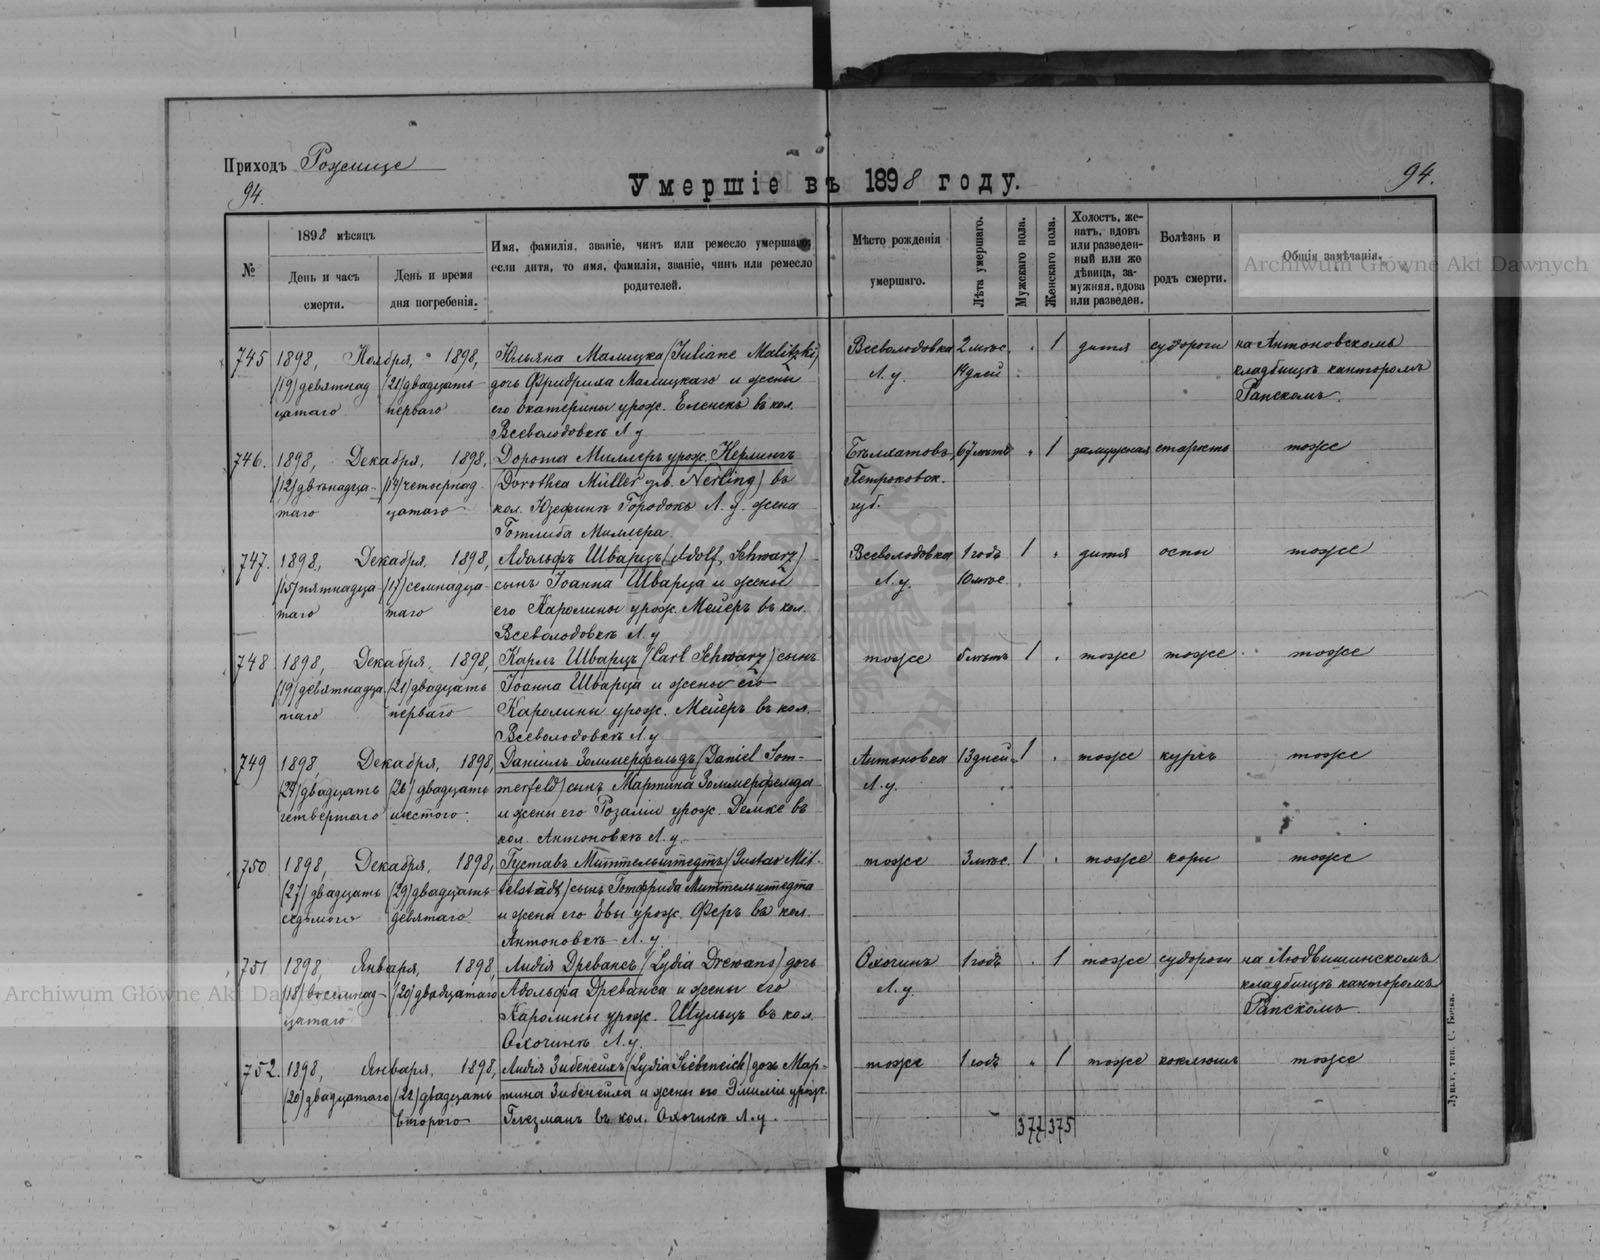 Приходъ Рожище
94.
94.
Умершіе въ 1898 году.
№
1898 мѣсяцъ
День и часъ смерти.
День и время дня погребенія.
Имя, фамилія, званіе, чинъ или ремесло умершаго;
если дитя, то имя, фамилія, званіе, чинъ или ремесло
родителей.
Мѣсто рожденія
умершаго.
Лѣта умершаго.
Мужскаго пола.
Женскаго пола.
Холостъ, же-
натъ, вдовъ
или разведен-
ный или же
дѣвица, за-
мужняя, вдова
или разведен.
Болѣзнь и
родъ смерти.
Общія замѣчанія.
Archiwum Główne Akt Dawnych
745 1898, Ноября, 1898, Юльяна Малицка (Juliane Malitzki) Всеволодовка 2 мѣс. 1 дитя судороги на Антоновскомъ
(19) девятнад (21) двадцать дочь Фридриха Малицкаго и жены Л. у. 14 дней кладбищѣ канторомъ
цатаго перваго его Екатерины урож. въ кол. Рапскомъ.
Всеволодовкѣ Л. у.
746. 1898, Декабря, 1898, Дорота Миллеръ урож. Нерлингъ Бѣлхатовъ 67 лѣтъ 1 замужная старость тоже
(12) двѣнадца- (14) четырнад- (Dorothea Müller gb. Nerling) въ Петроковск.
таго цатаго кол. Юзефинѣ Городокъ Л. у. жена губ.
Готлиба Миллера.
747. 1898, Декабря, 1898, Адольфъ Шварцъ (Adolf Schwarz) Всеволодовка 1 годъ 1 дитя оспы тоже
(15) пятнадца (17) семнадца- сынъ Іоанна Шварца и жены Л. у. 10 мѣс.
таго таго его Каролины урож. Мейеръ въ кол.
Всеволодовкѣ Л. у.
748 1898, Декабря, 1898, Карлъ Шварцъ (Carl Schwarz) сынъ тоже лѣтъ 1 тоже тоже тоже
(19) девятнадца (21) двадцать Іоанна Шварца и жены его
таго перваго Каролины урож. Мейеръ въ кол.
Всеволодовкѣ Л. у.
749 1898, Декабря, 1898, Даніилъ Зоммерфельдъ (Daniel Som- Антоновка 13 дней 1 тоже тоже
(24) двадцать (26) двадцать merfeld) сынъ Мартина Зоммерфельда Л. у.
четвертаго шестого. и жены его Розаліи урож. Демке въ
кол. Антоновкѣ Л. у.
750 1898, Декабря, 1898, Густавъ Миттельштедтъ (Gustav Mit- тоже 3 мѣс. 1 тоже кори тоже
(27) двадцать (29) двадцать telstädt) сынъ Готфрида Миттельштедта
седьмого девятаго и жены его Евы урож. Феръ въ кол.
Антоновкѣ Л. у.
751 1898, Января, 1898, Лидія Древансъ (Lydia Drewans) дочь Охочинъ 1 годъ 1 тоже судороги на Людвишинскомъ
(18) восемнад- (20) двадцатаго Адольфа Древанса и жены его Л. у. кладбищѣ канторомъ
цатаго Каролины урож. Шульцъ въ кол. Рапскомъ.
Охочинѣ Л. у.
Archiwum Główne Akt Dawnych
752. 1898, Января, 1898, Лидія Зибенейхъ (Lydia Siebeneich) дочь Мар- тоже 1 годъ 1 тоже коклюшъ тоже
(20) двадцатаго (22) двадцать тина Зибенейха и жены его Эмиліи урож.
второго въ кол. Охочинѣ Л. у.
377 375